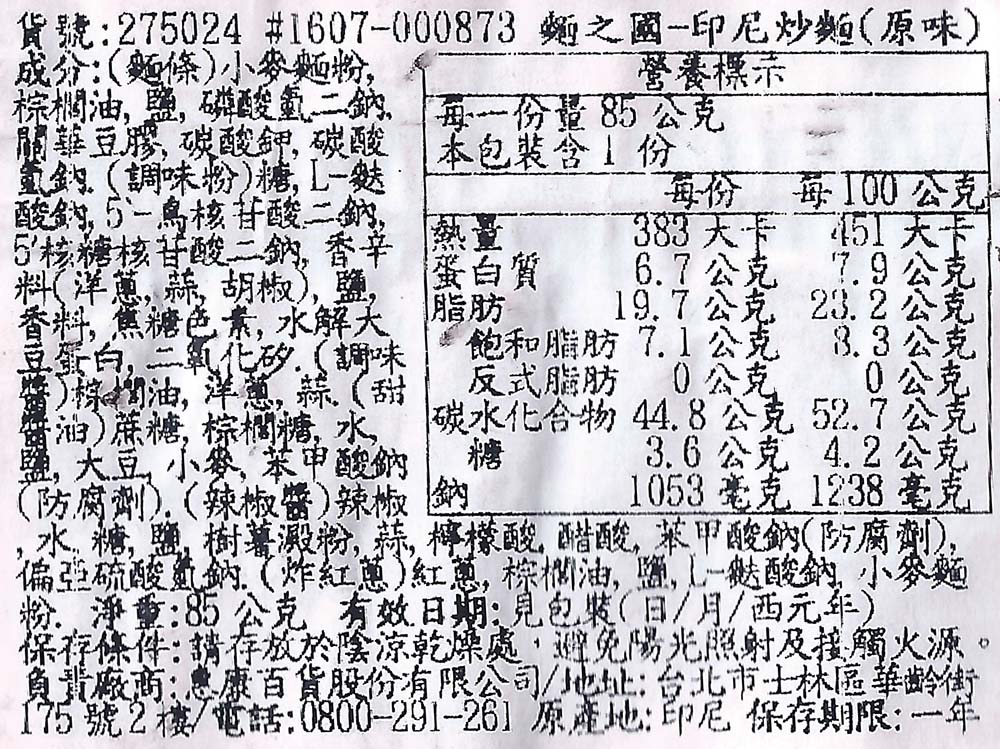 貨號:275024 #1607-000873 麵之國-印尼炒麵(原味)
成分:(麵條)小麥麵粉,
棕櫚油,鹽,磷酸氫二鈉,
關華豆膠,碳酸鉀,碳酸
氫鈉.(調味粉)糖,L-麩
酸鈉,5'-鳥核苷酸二鈉,
5'核糖核苷酸二鈉,香辛
料(洋蔥,蒜,胡椒),鹽,
香料,焦糖色素,水解大
豆蛋白,二氧化矽.(調味
醬)棕櫚油,洋蔥,蒜.(甜
醬油)蔗糖,棕櫚糖,水,
鹽,大豆,小麥,苯甲酸鈉
(防腐劑).(辣椒醬)辣椒
,水,糖,鹽,樹薯澱粉,蒜,檸檬酸,醋酸,苯甲酸鈉(防腐劑),
偏亞硫酸氫鈉.(炸紅蔥)紅蔥,棕櫚油,鹽,L-麩酸鈉,小麥麵
粉. 淨重:85 公克 有效日期:見包裝(日/月/西元年)
保存條件:請存放於陰涼乾燥處,避免陽光照射及接觸火源
負責廠商:惠康百貨股份有限公司/地址:台北市士林區華齡街
175 號2 樓/電話:0800-291-261 原產地:印尼 保存期限:一年
營養標示
每一份量 85 公克
本包裝含 1 份
每份 每 100 公克
熱量 383 大卡 451 大卡
蛋白質 6.7 公克 7.9 公克
脂肪 19.7 公克 23.2 公克
飽和脂肪 7.1 公克 8.3 公克
反式脂肪 0 公克 0 公克
碳水化合物 44.8 公克 52.7 公克
糖 3.6 公克 4.2 公克
鈉 1053 毫克 1238 毫克